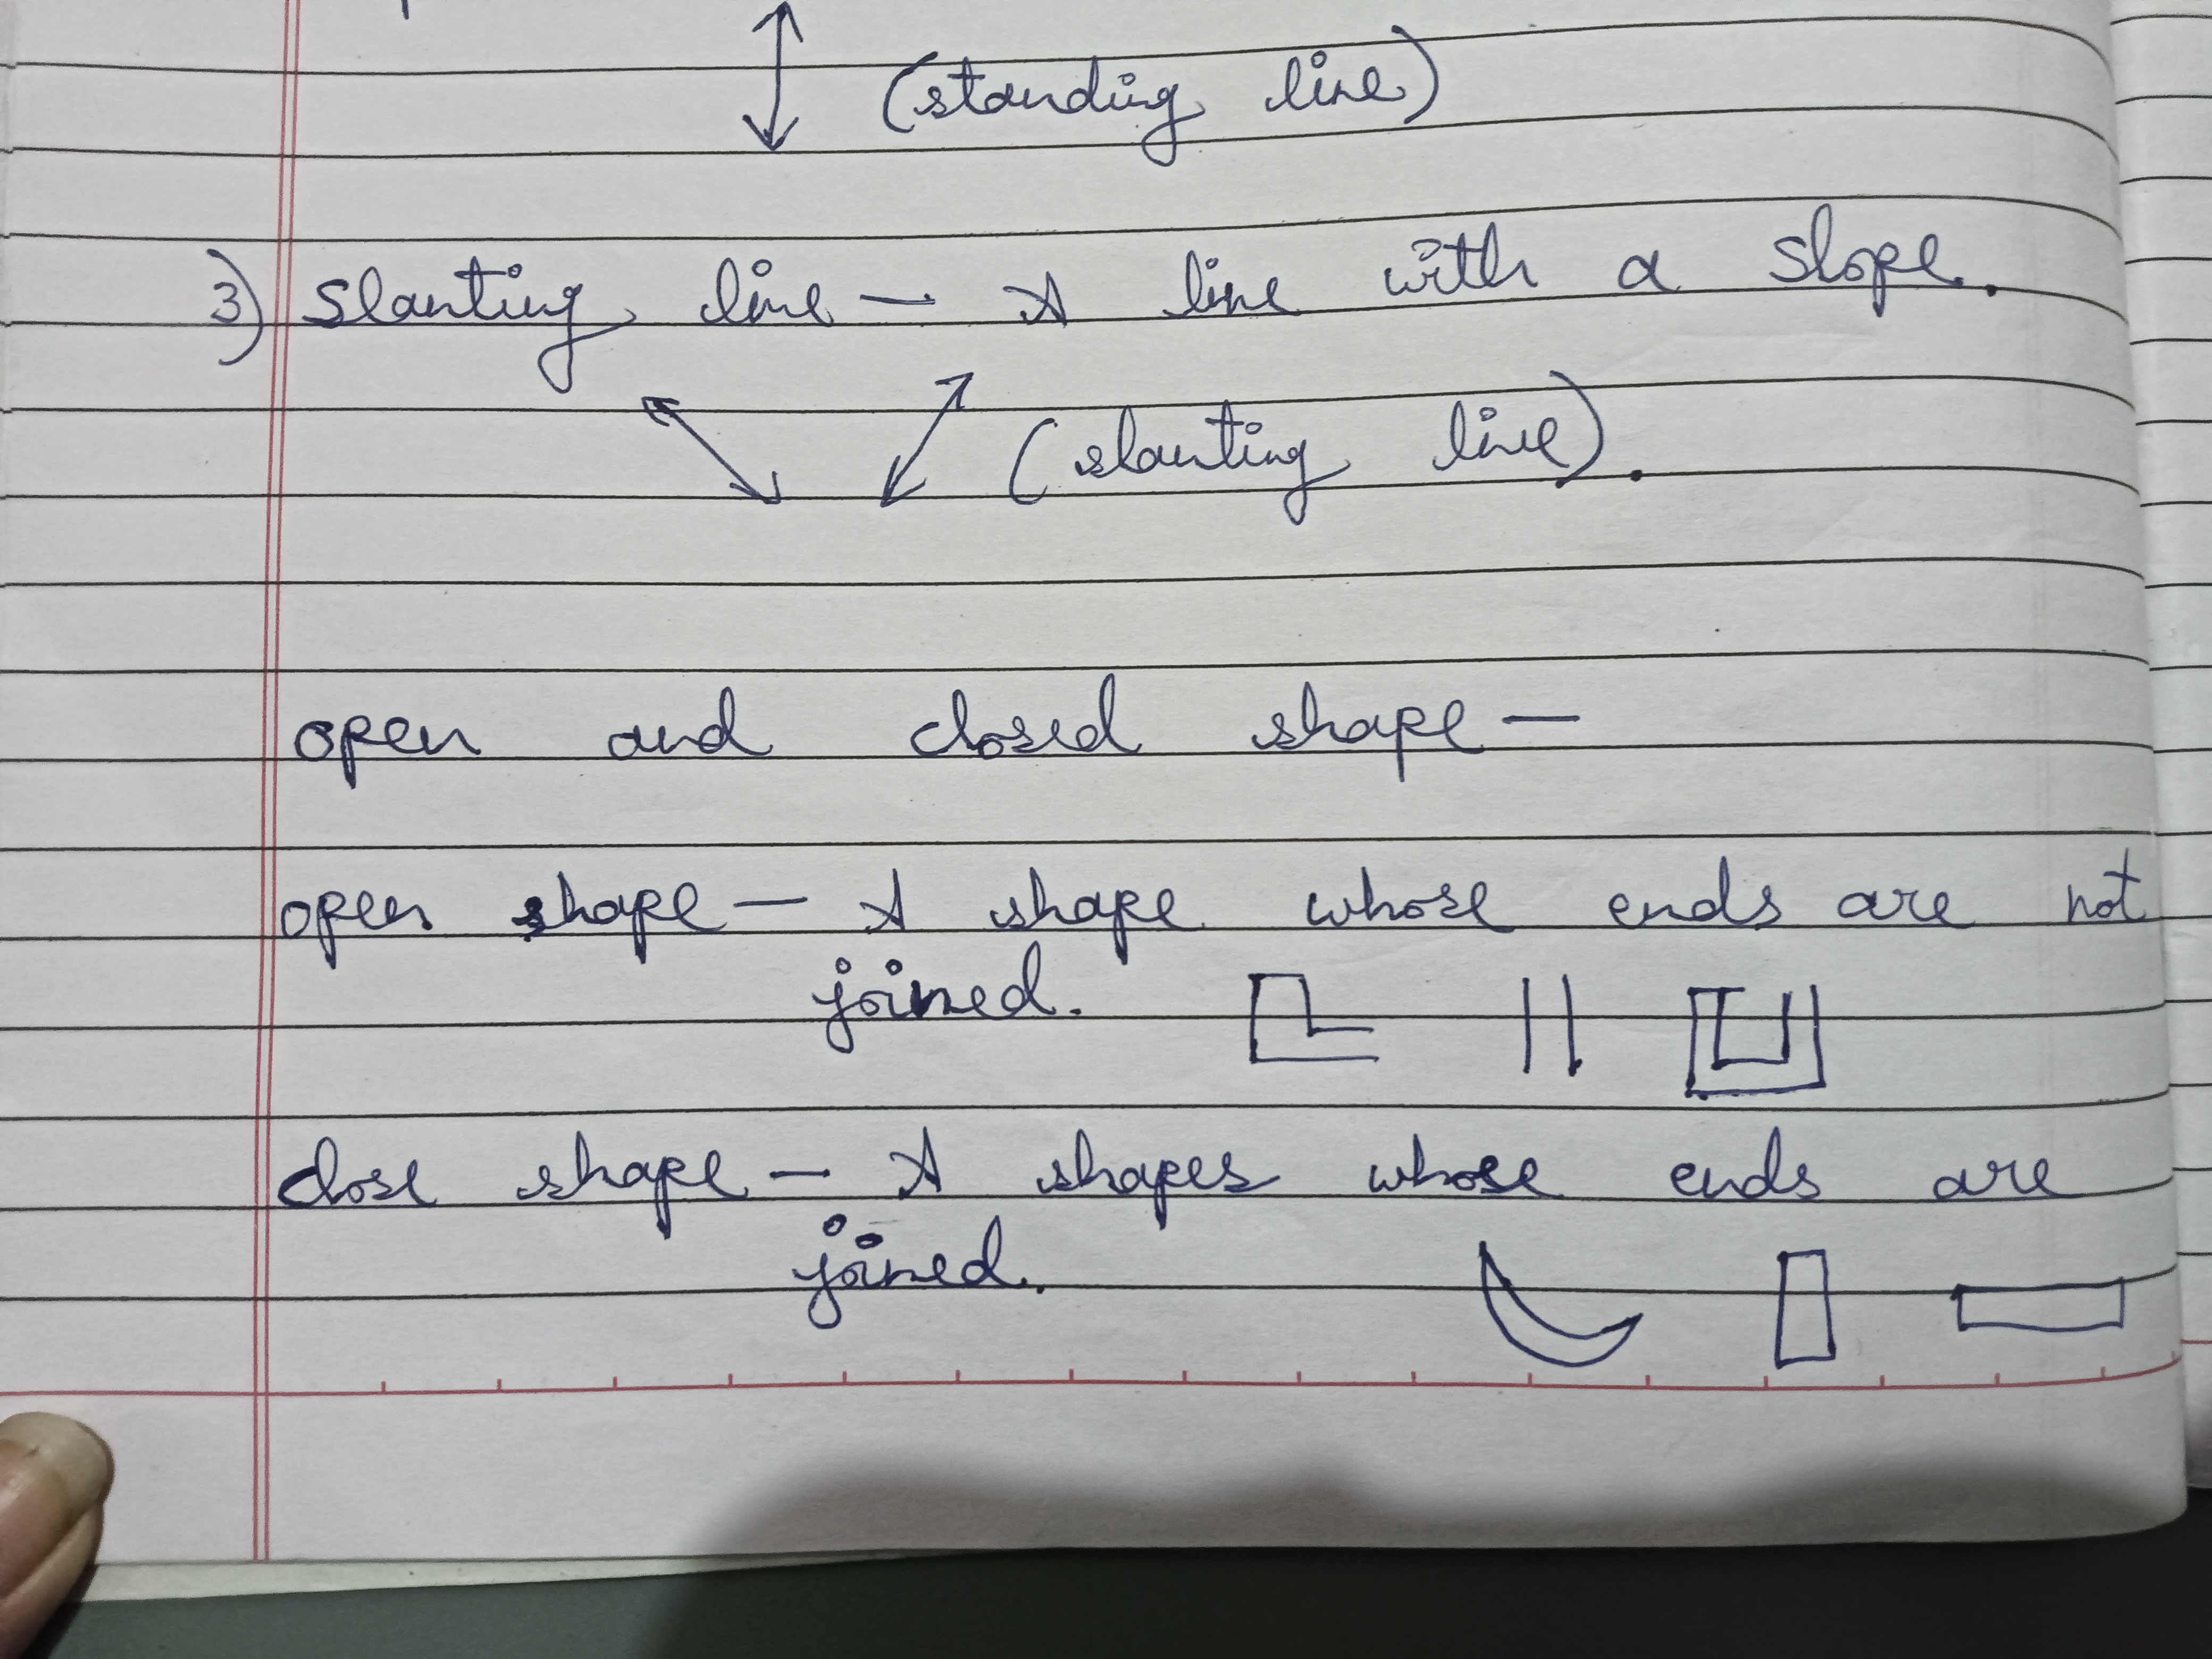 (standing line)
3) Slanting line — A line with a slope.
(slanting line).
open and closed shape —
open shape — A shape whose ends are not
joined.
close shape — A shapes whose ends are
joined.